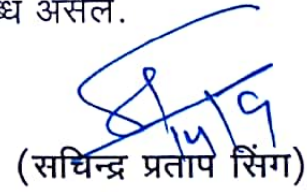 ध असेल.
14/9
(सचिन्द्र प्रताप सिंग)